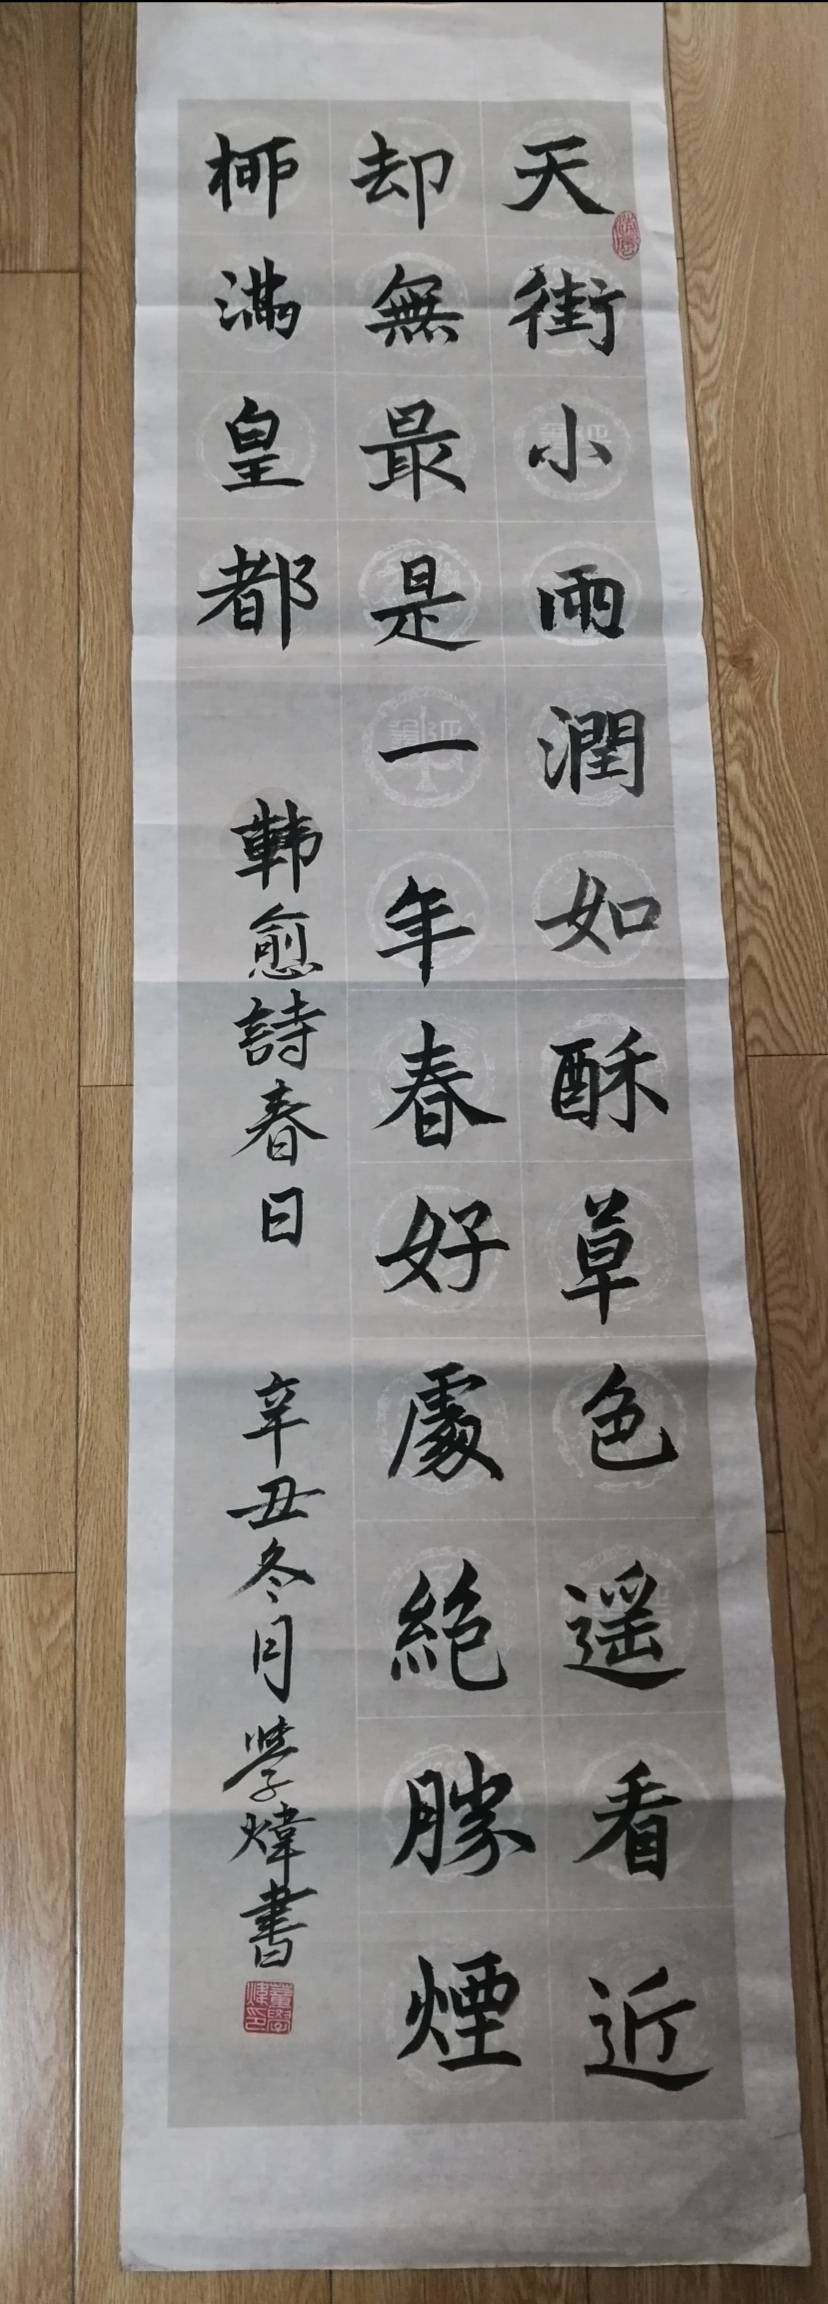 天街小雨潤如酥草色遥看近
却無最是一年春好處絶勝煙
栁满皇都
韩愈詩春日
辛丑冬月學煒書